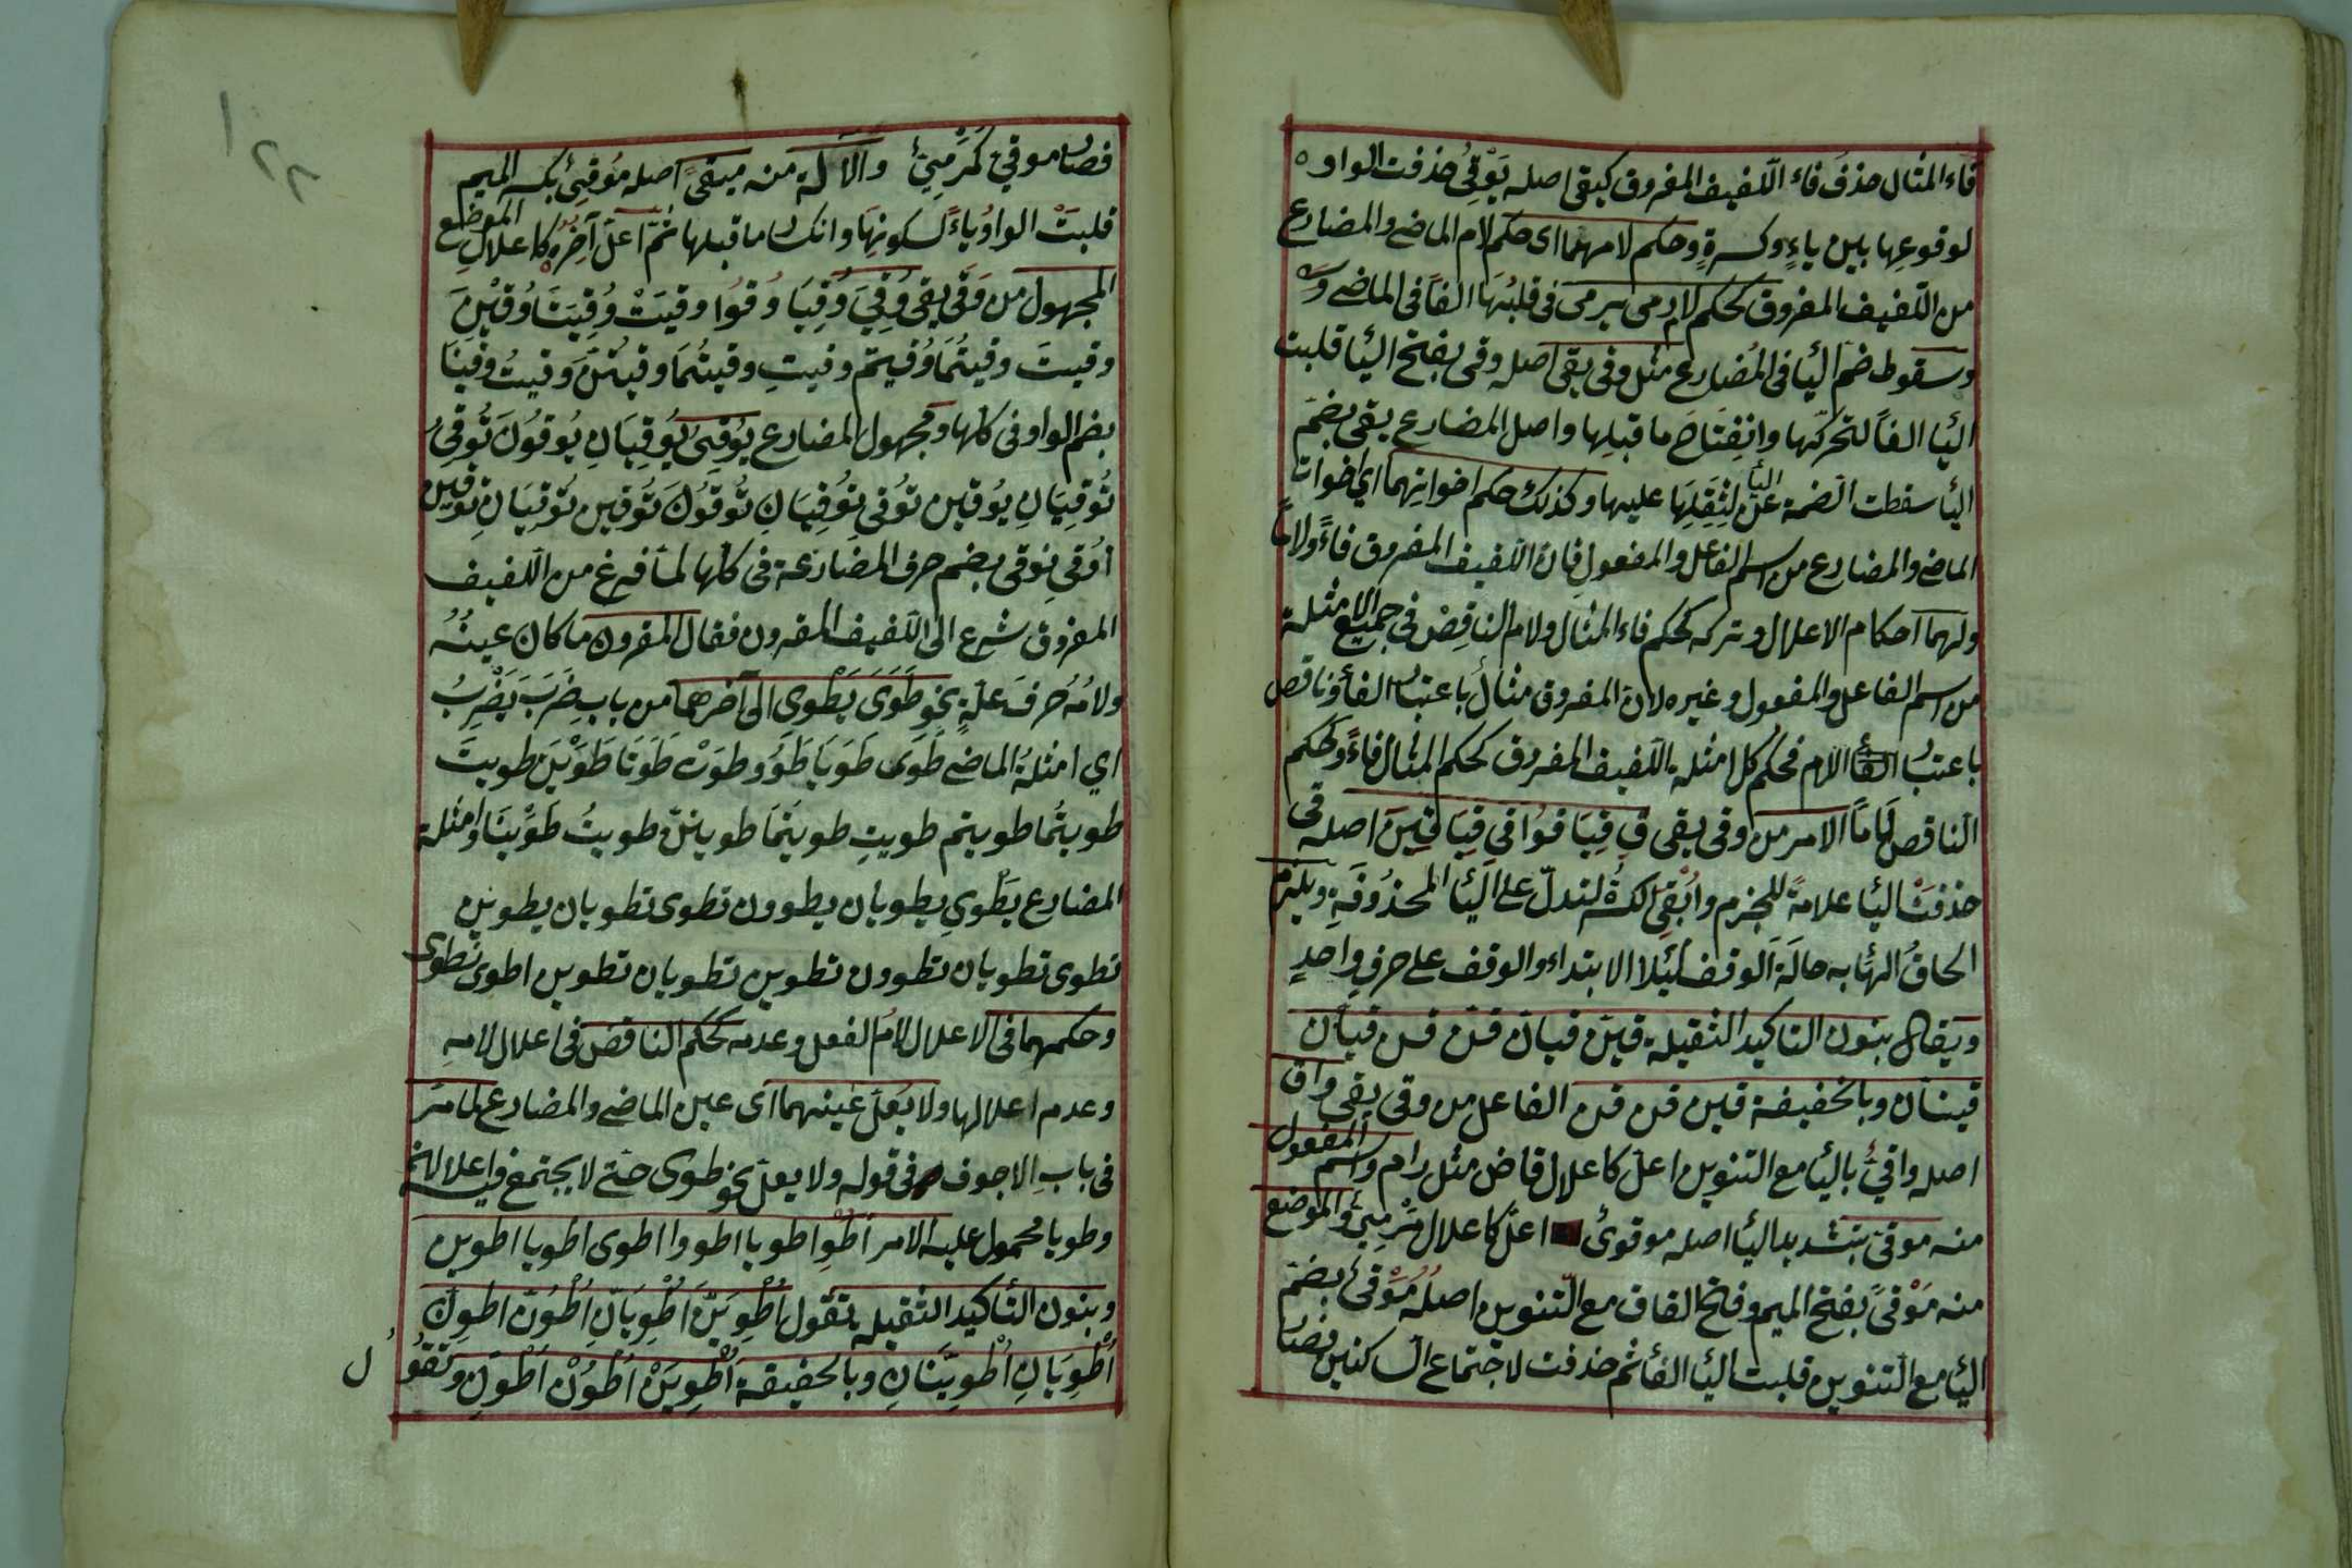 فاء المثال حذف فاء اللّفيف المفروق كيقى اصله يَوْقِىُ حذفت الواو
لوقوعِها بين ياءٍ وكسرةٍ وحكم لامهما اى حكم لام الماضى والمضارع
من اللّفيف المفروق كحكم لام رمى يرمى فى قلبُهَا الفًا فى الماضى
وسقوط ضم اليا فى المُضارع مثل وقى يقى اصله وقى بفتح اليا قلبت
اليا الفاً لتحركها وانفِتَاح ما قبلِها واصل المضارع يقى بضمّ
اليا سقطت الضمة عن اليا لِثِقَلِهَا عليها وكذلك حكم اخواتِهما اي اخوات
الماضى والمضارع من اسم الفاعل والمفعول فان اللّفيف المفروق فاءً ولامًا
ولهما احكام الاعلال وتركه كحكم فاء المثال ولام الناقِص فى جميع الامثلة
من اسم الفاعل والمفعول وغيره لان المفروق مثال باعتبار الفأ وناقص
باعتبار اللام فحكم كل امثله اللّفيف المفروق كحكم المثال فاءً وكحكم
الناقص لاماً الامر من وقى يقى قِ قِيَا قوُا قِى قِيَا قِينَ اصله قى
حذفت اليا علامةً للجزم وابُقِى الكسرةُ لتدلّ على اليا المحذُوفَةِ ويلزم
الحاقُ الهٔا به حالَة الوقف لئلا الابتداء والوقف على حرفٍ واحدٍ
ويقال بنون التاكيد الثقيلة قينّ قيانّ قنّ قنّ قيانّ
قينانّ وبالخفيفة قين قن قن الفاعل من وقى يقى واق
اصله واقىٌ باليا مع التنوين اعلّ كاعلال قاض مثل رام واسم المفعول
منه موقىّ بتشديد اليا اصله موقوىٌ اعلّ كاعلال مَرْمِىّ والموضع
منه مَوْقىً بفتح الميم وفتح القاف مع التّنوين اصلُه مَوْقىٌ بضمّ
اليا مع التّنوين قلبت اليا الفاً ثم حذفت لاجتماع الساكنين فصار
فصار موقىً كمَرْمىً والالة منه ميقىً اصله مِوْقىٌ بكسر الميم
قلبتْ الواوُ ياءً لسكونِهَا وانكسار ما قبلها ثمّ اعلّ آخرُه كاعلالِ الموضع
المجهول من وَقَى يقى وُقِىَ وُقِيَا وُقوُا وقيَتْ وُقِيَتَا وُقِيْنَ
وقيتَ وقيتُمَا وُقيتم وقيتِ وقيتُمَا وقيتُنّ وَقيتُ وقينَا
بضم الواو فى كلها ومجهول المضارع يوُقىَ يُوقِيَانِ يُوقوُنَ تُوقىُ
تُوقِيَانِ يُوقين توُقى تِوُقِيَانِ تُوقَوُنَ تُوقين تُوقيَانِ تُوقين
أوُقى نوقى بضم حرف المضارعة فى كلها لما فرغ من اللّفيف
المفروق شرع الى اللّفيف المقرون فقال المقرون ما كان عينُه
ولامُهُ حرفَ علّةٍ نحو طَوَىَ يَطْوِى الى آخرهما من بابِ ضَرَبَ يَضْرِبُ
اي امثلةُ الماضى طَوَى طَوَيَا طَوَوُ وطوَتْ طَوَتَا طَوَيْنَ طويتَ
طويتُما طويتم طويتِ طويتمَا طويتنّ طويتُ طوَينَا وامثلة
المضارع يَطْوِى يطويان يطوون تطوى تطويان يطوين
تطوى تطويان تطوون تطوين تطويان تطوين اطوى نطوى
وحكمهما فى الاعلال لامُ الفعل وعدمه كحكم الناقص فى اعلال لامه
وعدم اعلالها ولا يُعلّ عينهما اى عين الماضى والمضارع لما مرّ
فى بابِ الاجوف فى قوله ولا يعلّ نحو طوى حتى لا يجتمع فيه اعلالان
وطويا محمول عليه الامر اطْوِ اطويا اطووا اطوى اطويا اطوين
وبنون التأكيد الثقيله تقول اُطْوِيَنَّ اُطْوِيَانِّ اُطْوُنَّ اطوِنّ
اُطْوِيَانِ اُطْوِيْنَانِ وبالخفيفة اُطْوِيَنْ اُطْوُنْ اُطْوِنِ وتقوُ ل